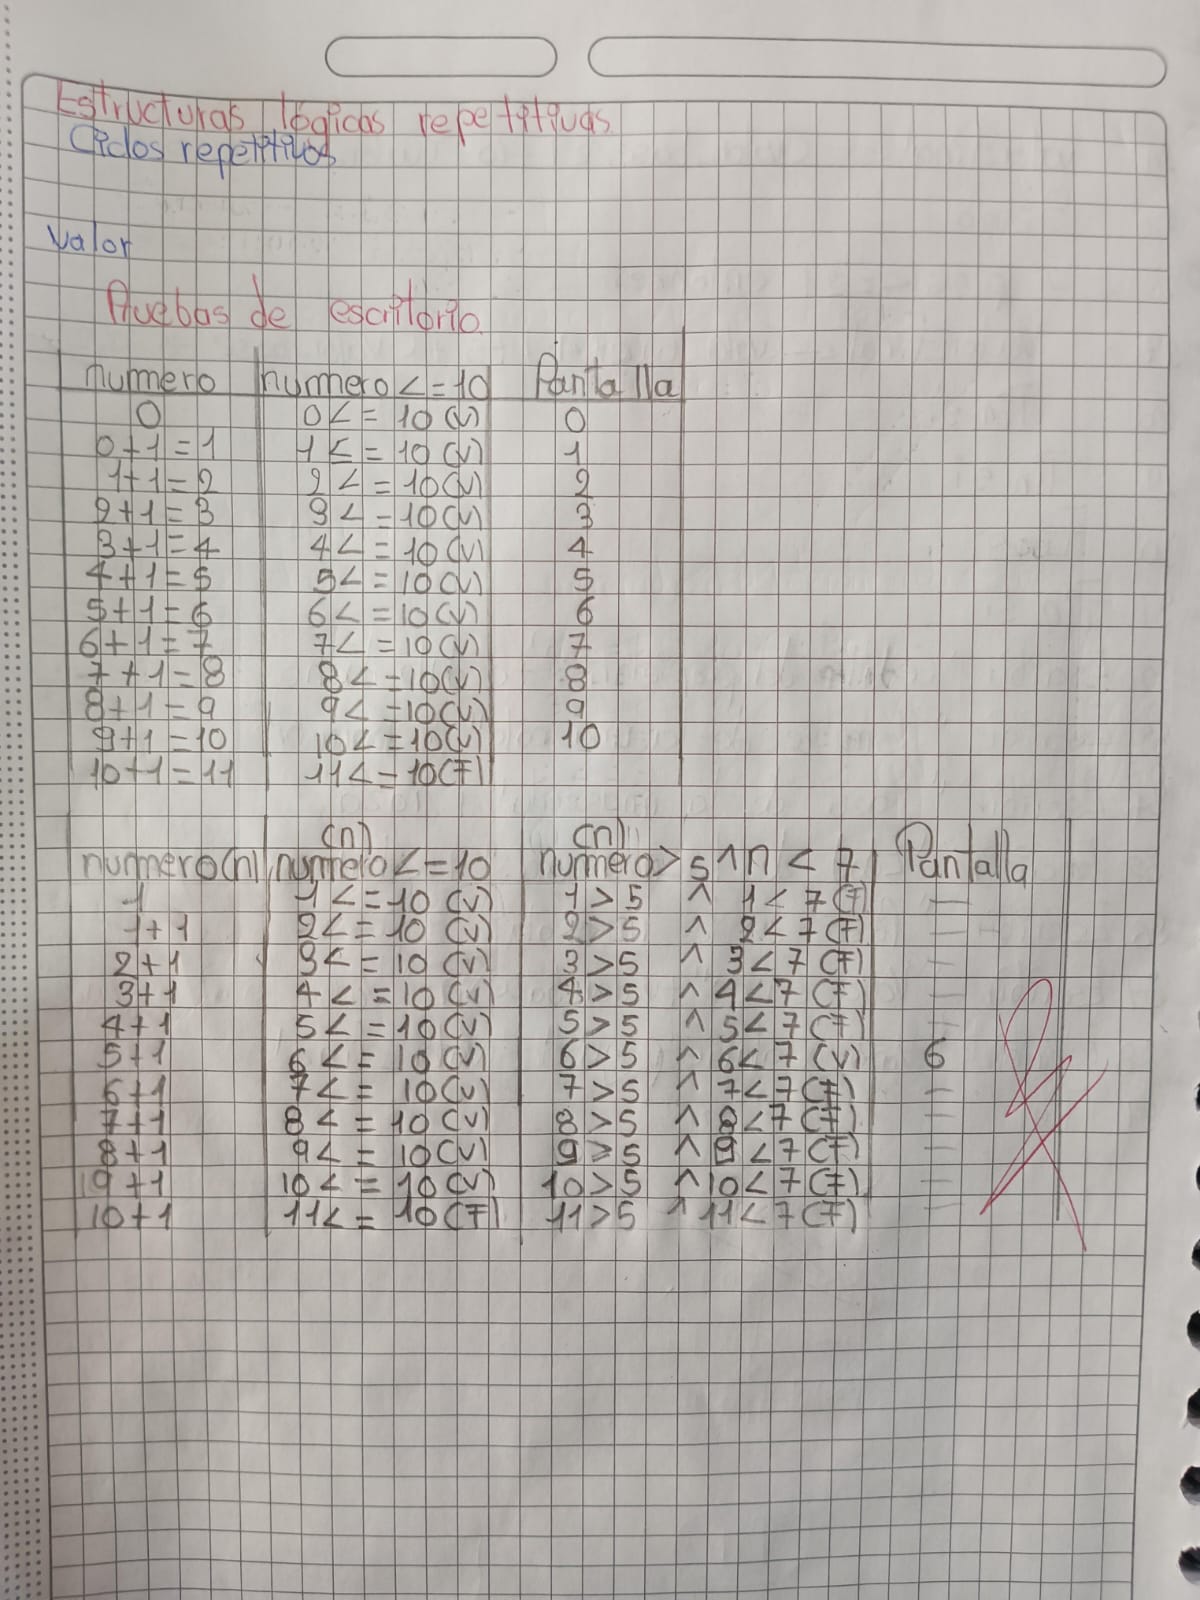 Estructuras lógicas repetitivas.
Ciclos repetitivos
Valor
Pruebas de escritorio.
numero numero <= 10 Pantalla
0 0 <= 10 (V) 0
0+1=1 1 <= 10 (V) 1
1+1=2 2 <= 10 (V) 2
2+1=3 3 <= 10 (V) 3
3+1=4 4 <= 10 (V) 4
4+1=5 5 <= 10 (V) 5
5+1=6 6 <= 10 (V) 6
6+1=7 7 <= 10 (V) 7
7+1=8 8 <= 10 (V) 8
8+1=9 9 <= 10 (V) 9
9+1=10 10 <= 10 (V) 10
10+1=11 11 <= 10 (F)
(n) (n)
numero(n) numero <= 10 numero > 5 ^ n < 7 Pantalla
1 1 <= 10 (V) 1 > 5 ^ 1 < 7 (F) —
1+1 2 <= 10 (V) 2 > 5 ^ 2 < 7 (F) —
2+1 3 <= 10 (V) 3 > 5 ^ 3 < 7 (F) —
3+1 4 <= 10 (V) 4 > 5 ^ 4 < 7 (F) —
4+1 5 <= 10 (V) 5 > 5 ^ 5 < 7 (F) —
5+1 6 <= 10 (V) 6 > 5 ^ 6 < 7 (V) 6
6+1 7 <= 10 (V) 7 > 5 ^ 7 < 7 (F) —
7+1 8 <= 10 (V) 8 > 5 ^ 8 < 7 (F) —
8+1 9 <= 10 (V) 9 > 5 ^ 9 < 7 (F) —
9+1 10 <= 10 (V) 10 > 5 ^ 10 < 7 (F) —
10+1 11 <= 10 (F) 11 > 5 ^ 11 < 7 (F) —